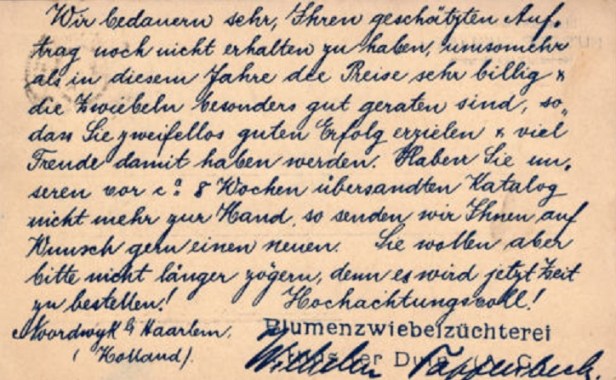 Wir bedauern sehr, Ihren geschätzten Auf-
trag noch nicht erhalten zu haben, umsomehr
als in diesem Jahre die Preise sehr billig &
die Zwiebeln besonders gut geraten sind, so
dass Sie zweifellos guten Erfolg erzielen & viel
Freude damit haben werden. Haben Sie un-
seren vor ca 8 Wochen übersandten Katalog
nicht mehr zur Hand, so senden wir Ihnen auf
Wunsch gern einen neuen. Sie wollen aber
bitte nicht länger zögern, denn es wird jetzt Zeit
zu bestellen! Hochachtungsvoll!
Noordwyk b/ Haarlem. Blumenzwiebelzüchterei
(Holland). Wilhelm Tappenbeck.